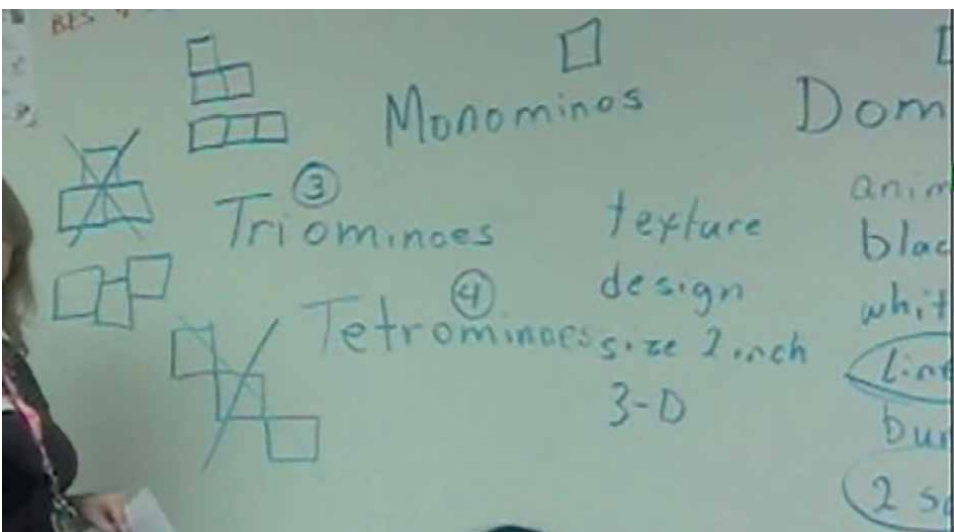 BES
Monominos
Dom
3
Triominoes
4
Tetrominoes
texture
design
size 2 inch
3-D
anim
blac
whit
Line
bur
2 sq